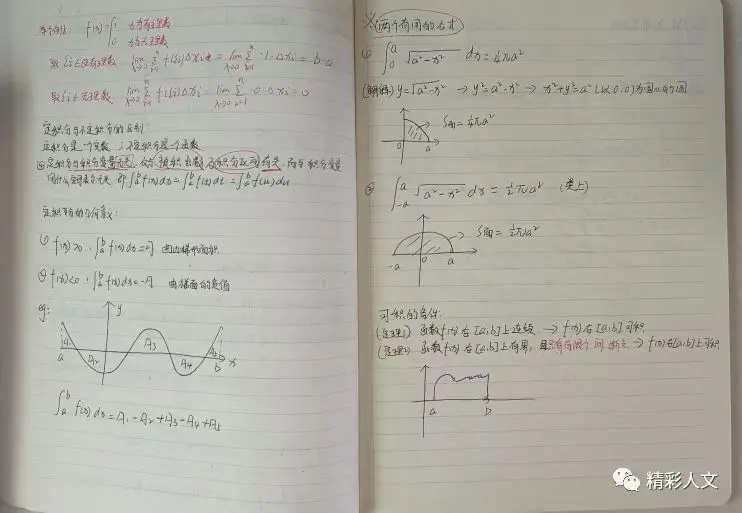 举个例子: f(x)={1 x为有理数
0 x为无理数
取ξi∈有理数 lim λ→0 Σ i=1 n f(ξi)Δxi = lim λ→0 Σ i=1 n ·1·Δxi = b-a
取ξi∈无理数 lim λ→0 Σ i=1 n f(ξi)Δxi = lim λ→0 Σ i=1 n ·0·Δxi = 0
定积分与不定积分的区别:
定积分是一个实数, 不定积分是一个函数
定积分与积分变量无关, 仅与被积函数及积分区间有关, 积分变量
用什么字母表示无关 即∫_a^b f(x)dx=∫_a^b f(t)dt=∫_a^b f(u)du
定积分的几何意义:
(1) f(x)>0, ∫_a^b f(x)dx=A 曲边梯形面积
f(x)<0, ∫_a^b f(x)dx=-A 曲梯面的负值
eg:
y
A1 A2 A3 A4 A5
a b x
∫_a^b f(x)dx=A1-A2+A3-A4+A5
※(两个常用的公式)
(1) ∫_0^a √(a²-x²) dx=¼πa²
(解释) y=√(a²-x²) → y²=a²-x² → x²+y²=a² 以(0.0)为圆心的圆
S面=¼πa²
0 a
② ∫_-a^a √(a²-x²) dx=½πa² (类上)
S面=½πa²
-a 0 a
可积的条件:
(定理1) 函数f(x)在[a,b]上连续 → f(x)在[a,b]可积
(定理2) 函数f(x)在[a,b]上有界, 且只有有限个间断点 → f(x)在[a,b]上可积
a b
精彩人文